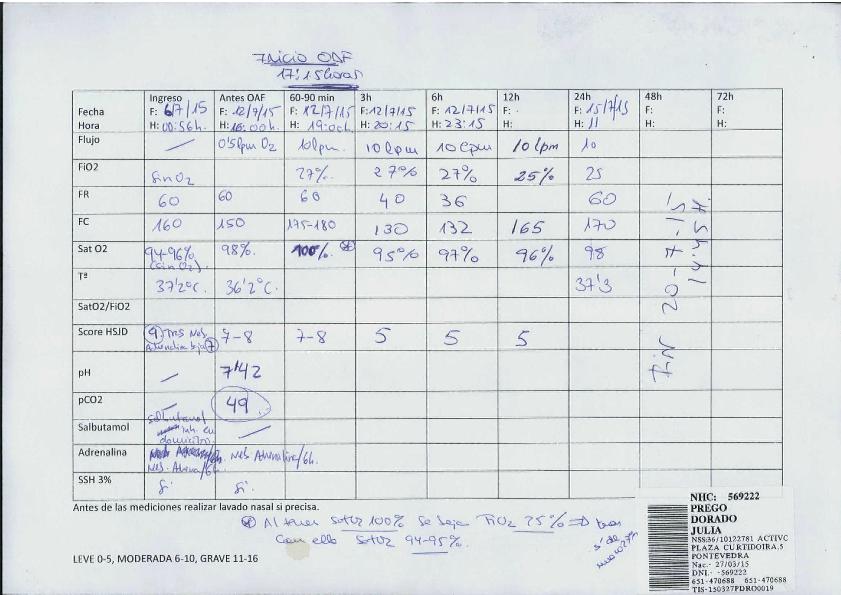 Inicio OAF
17:15 horas
Fecha Hora | Ingreso F: 6/7/15 H: 00:56h. | Antes OAF F: 12/7/15 H: 16:00h. | 60-90 min F: 12/7/15 H: 19:00h. | 3h F: 12/7/15 H: 20:15 | 6h F: 12/7/15 H: 23:15 | 12h F: H: | 24h F: 15/7/15 H: 11 | 48h F: H: | 72h F: H:
Flujo | 0'5 lpm O2 | 10 lpm. | 10 lpm | 10 lpm | 10 lpm | 10
FiO2 | sin O2 | 27%. | 27% | 27% | 25% | 25
FR | 60 | 60 | 60 | 40 | 36 | 60
FC | 160 | 150 | 175-180 | 130 | 132 | 165 | 170
Sat O2 | 94-96% (sin O2). | 98%. | 100%. * | 95% | 97% | 96% | 98
Tª | 37'2ºC. | 36'2ºC. | 37'3
SatO2/FiO2
Score HSJD | 9 tras Neb. Adrenalina baja 7 | 7-8 | 7-8 | 5 | 5 | 5
pH | 7'42
pCO2 | 49
Salbutamol | Salbutamol inh. en domicilio.
Adrenalina | Neb. Adrena/6h. | Neb Adrenalina/6h.
SSH 3% | Si | Si.
Fin 20-7-15
14:45h
Antes de las mediciones realizar lavado nasal si precisa.
* Al tener SatO2 100% se baja FiO2 25% ⇒
Con ello SatO2 94-95%.
LEVE 0-5, MODERADA 6-10, GRAVE 11-16
NHC: 569222
PREGO
DORADO
JULIA
NSS:36/10122781 ACTIVC
PLAZA CURTIDOIRA,5
PONTEVEDRA
Nac.- 27/03/15
DNI.- -569222
651-470688 651-470688
TIS-150327PDRO0019